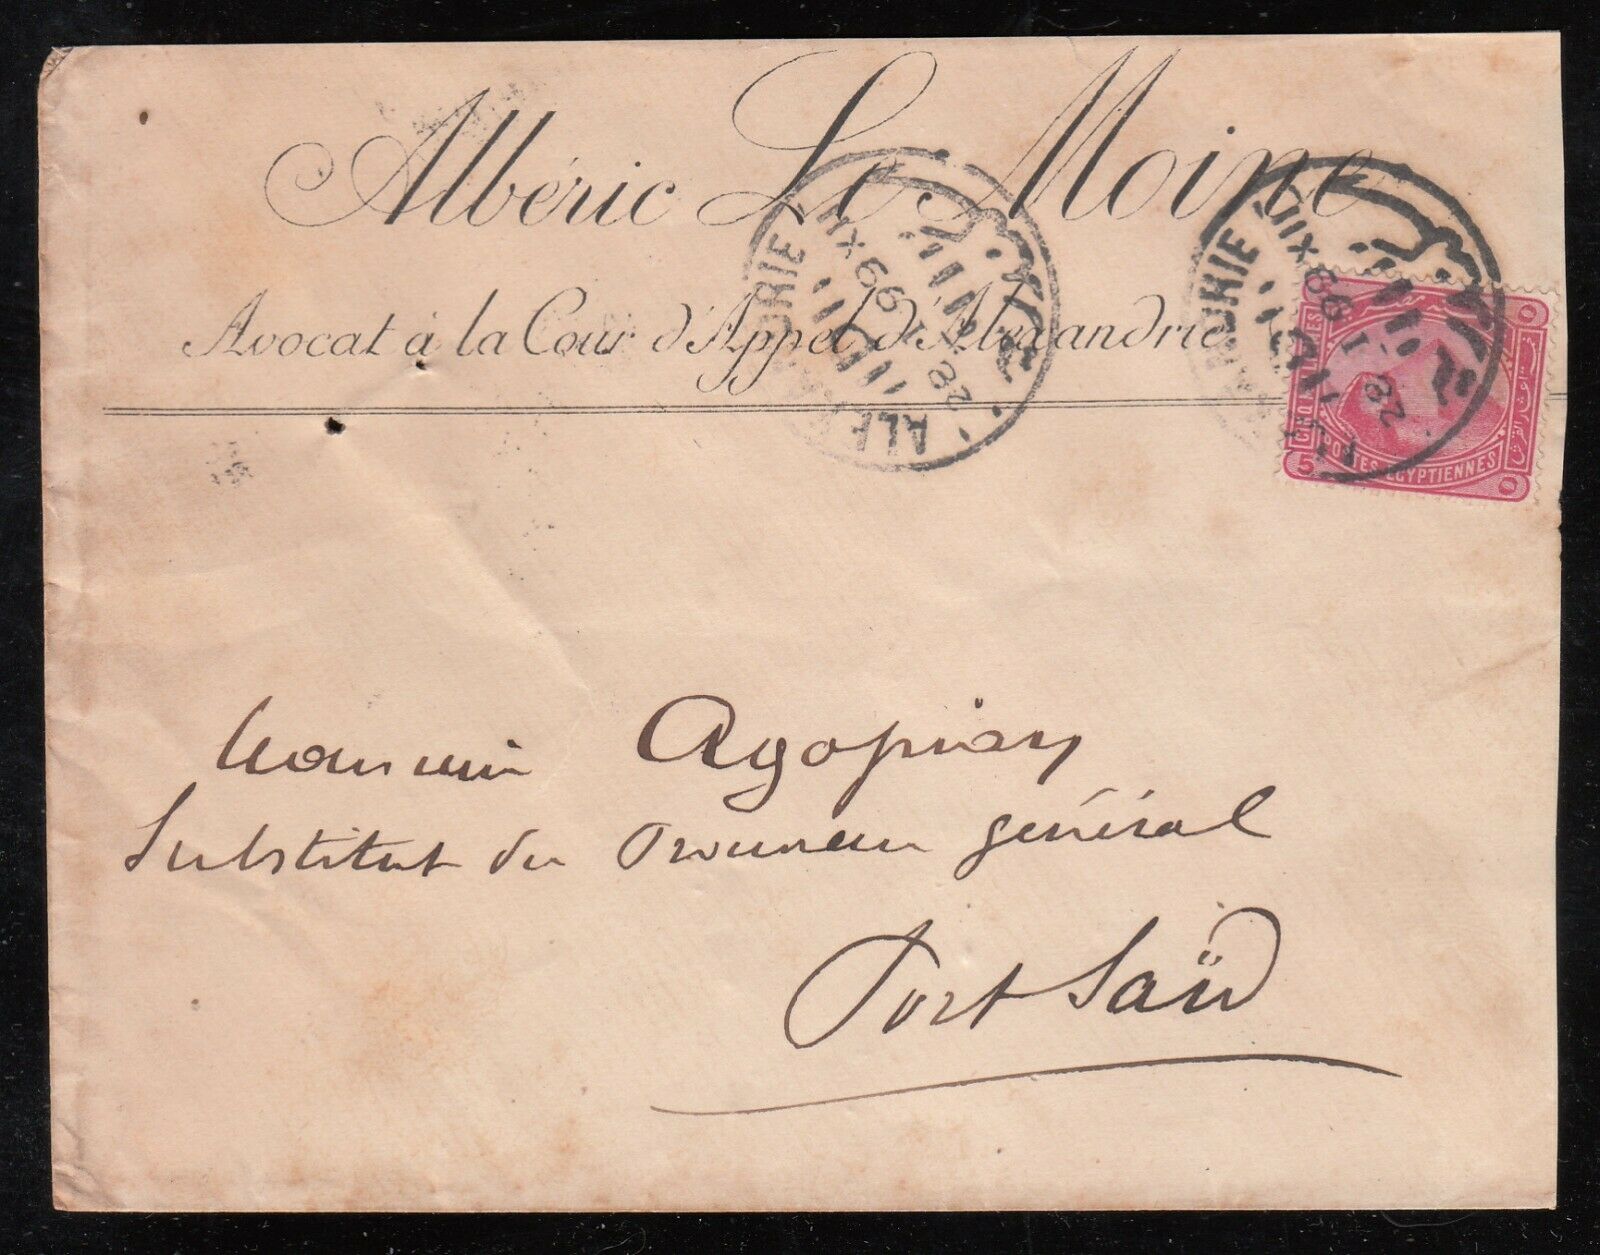 Albéric Le Moine
Avocat à la Cour d'Appel d'Alexandrie
ALEXANDRIE
28 I 99 XII
ALEXANDRIE
28 I 99 XII
5
POSTES EGYPTIENNES
Monsieur Agopian
Substitut du Procureur général
Port Saïd